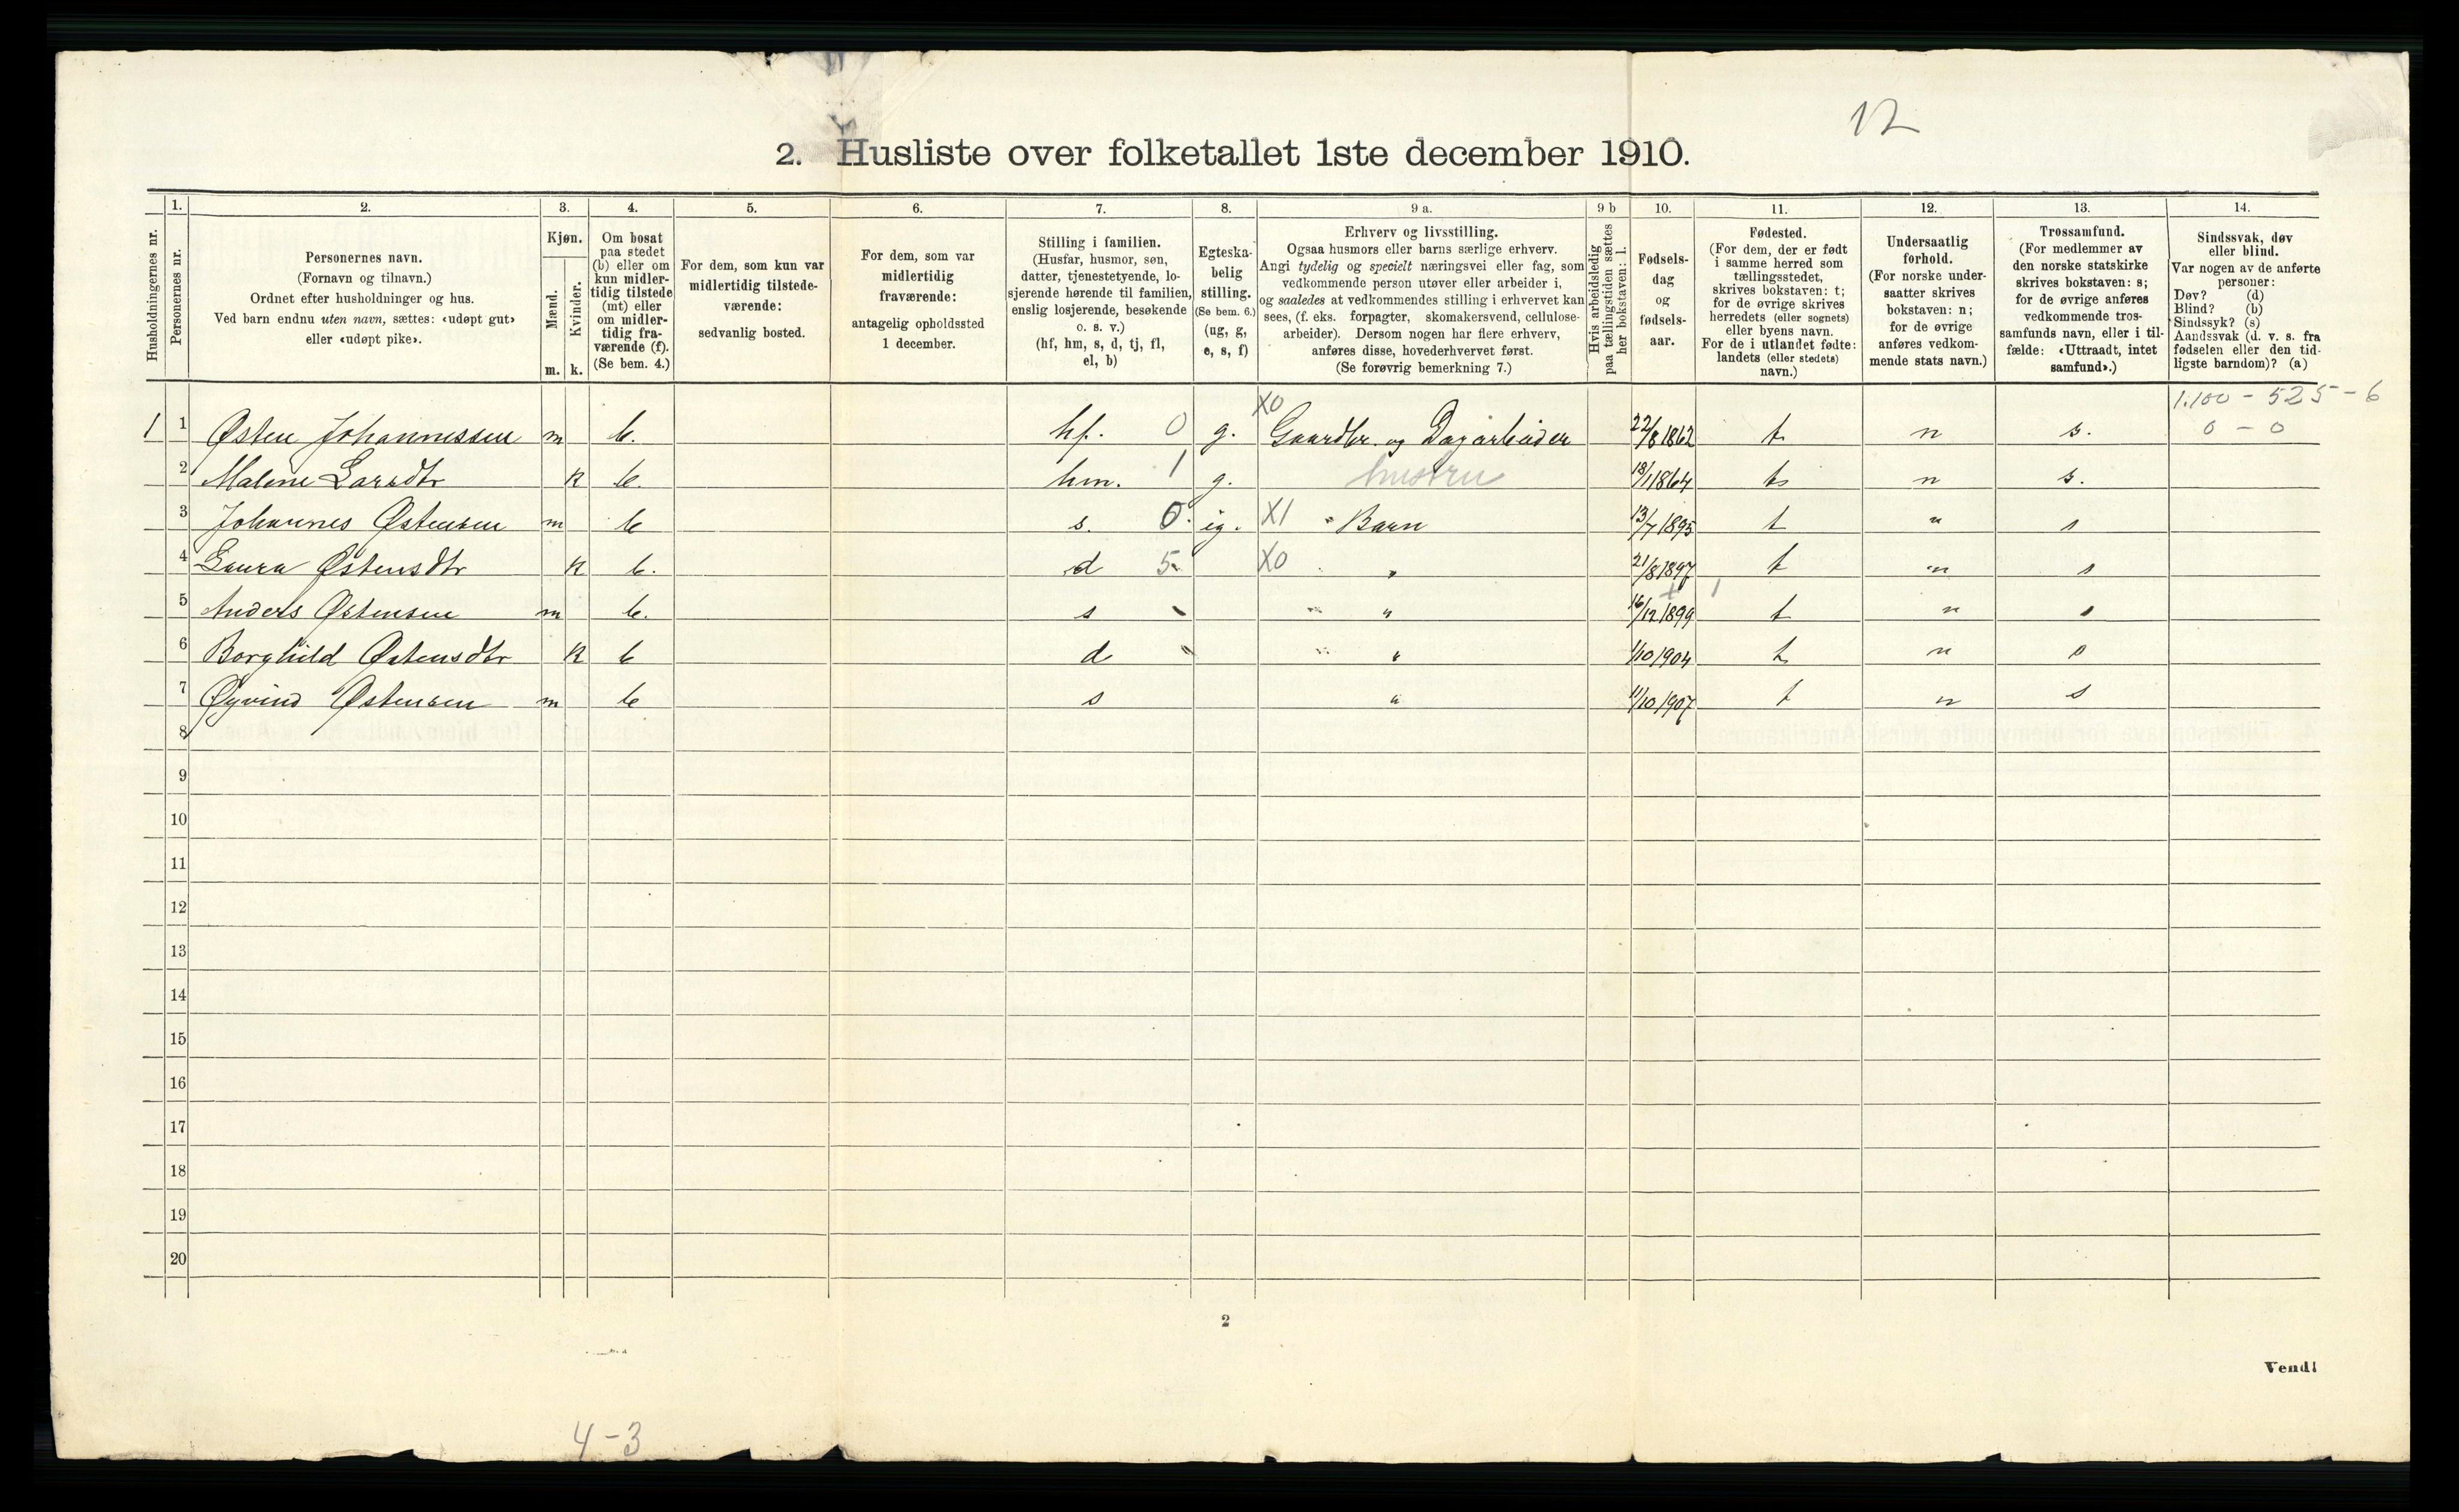 12
2. Husliste over folketallet 1ste december 1910.
Husholdningernes nr.
1.
Personernes nr.
2.
Personernes navn.
(Fornavn og tilnavn.)
Ordnet efter husholdninger og hus.
Ved barn endnu uten navn, sættes: «udøpt gut»
eller «udøpt pike».
3.
Kjøn.
Mænd.
Kvinder.
m. k.
4.
Om bosat
paa stedet
(b) eller om
kun midler-
tidig tilstede
(mt) eller
om midler-
tidig fra-
værende (f).
(Se bem. 4.)
5.
For dem, som kun var
midlertidig tilstede-
værende:
sedvanlig bosted.
6.
For dem, som var
midlertidig
fraværende:
antagelig opholdssted
1 december.
7.
Stilling i familien.
(Husfar, husmor, søn,
datter, tjenestetyende, lo-
sjerende hørende til familien,
enslig losjerende, besøkende
o. s. v.)
(hf, hm, s, d, tj, fl,
el, b)
8.
Egteska-
belig
stilling.
(Se bem. 6.)
(ug, g,
e, s, f)
9 a.
Erhverv og livsstilling.
Ogsaa husmors eller barns særlige erhverv.
Angi tydelig og specielt næringsvei eller fag, som
vedkommende person utøver eller arbeider i,
og saaledes at vedkommendes stilling i erhvervet kan
sees, (f. eks. forpagter, skomakersvend, cellulose-
arbeider). Dersom nogen har flere erhverv,
anføres disse, hovederhvervet først.
(Se forøvrig bemerkning 7.)
9 b
Hvis arbeidsledig
paa tællingstiden sættes
her bokstaven: l.
10.
Fødsels-
dag
og
fødsels-
aar.
11.
Fødested.
(For dem, der er født
i samme herred som
tællingsstedet,
skrives bokstaven: t;
for de øvrige skrives
herredets (eller sognets)
eller byens navn.
For de i utlandet fødte:
landets (eller stedets)
navn.)
12.
Undersaatlig
forhold.
(For norske under-
saatter skrives
bokstaven: n;
for de øvrige
anføres vedkom-
mende stats navn.)
13.
Trossamfund.
(For medlemmer av
den norske statskirke
skrives bokstaven: s;
for de øvrige anføres
vedkommende tros-
samfunds navn, eller i til-
fælde: «Uttraadt, intet
samfund».)
14.
Sindssvak, døv
eller blind.
Var nogen av de anførte
personer:
Døv? (d)
Blind? (b)
Sindssyk? (s)
Aandssvak (d. v. s. fra
fødselen eller den tid-
ligste barndom)? (a)
1.100 - 525 - 6
1 1 Østen Johannessen m b. hf. 0 g. X0 Gaardbr. og Dagarbeider 22/8 1862 t. n s. 0 - 0
2 Malene Larsdtr k b. hm. 1 g. hustru 18/1 1864 t n s.
3 Johannes Østensen m b s. 0 ig. X1 " Barn 13/7 1895 t " s
4 Laura Østensdtr k b. d 5 X0 " 21/8 1897 t n s
5 Anders Østensen m b. s " 16/12 1899 t n s
6 Borghild Østensdtr k b d " 1/10 1904 t n s
7 Øyvind Østensen m b s " 11/10 1907 t n s
8
9
10
11
12
13
14
15
16
17
18
19
20
2
Vend!
4-3